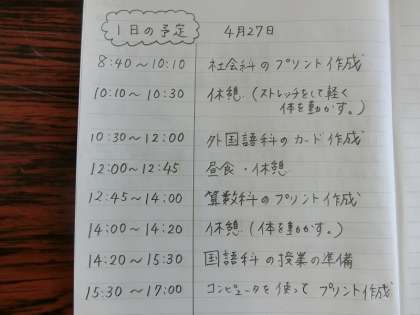 1日の予定 4月27日
8:40～10:10 社会科のプリント作成
10:10～10:30 休憩（ストレッチをして軽く
体を動かす。）
10:30～12:00 外国語科のカード作成
12:00～12:45 昼食・休憩
12:45～14:00 算数科のプリント作成
14:00～14:20 休憩（体を動かす。）
14:20～15:30 国語科の授業の準備
15:30～17:00 コンピュータを使ってプリント作成